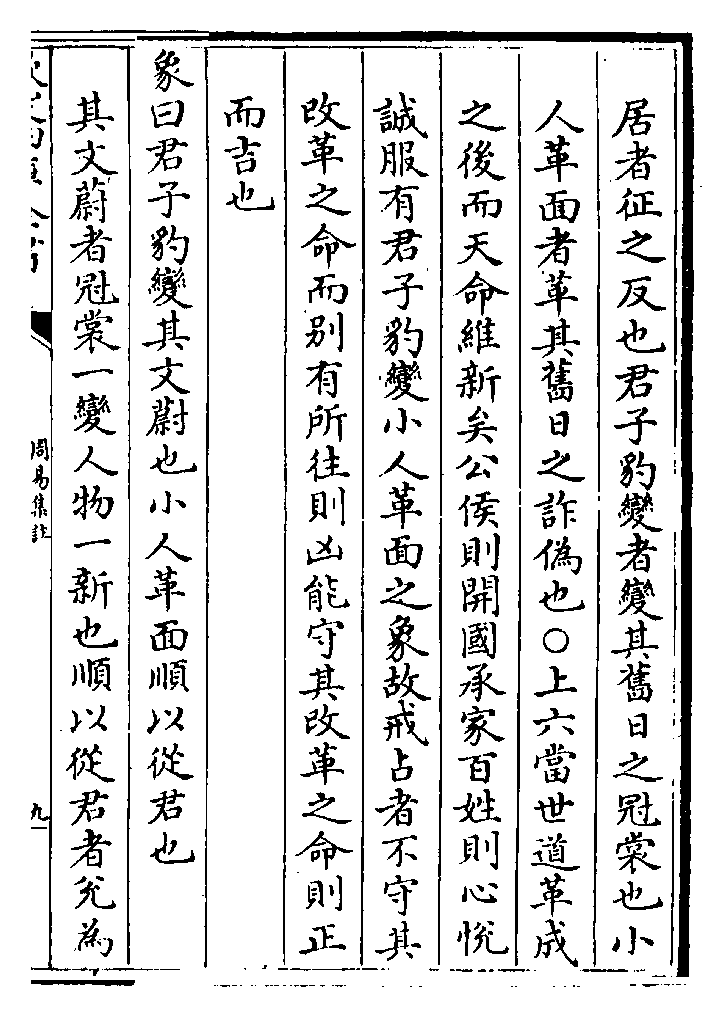 居者征之反也君子豹變者變其舊日之冠裳也小
人革面者革其舊日之詐偽也○上六當世道革成
之後而天命維新矣公侯則開國承家百姓則心悅
誠服有君子豹變小人革面之象故戒占者不守其
改革之命而别有所往則凶能守其改革之命則正
而吉也
象曰君子豹變其文蔚也小人革面順以從君也
其文蔚者冠裳一變人物一新也順以從君者兊為
周易集註
九